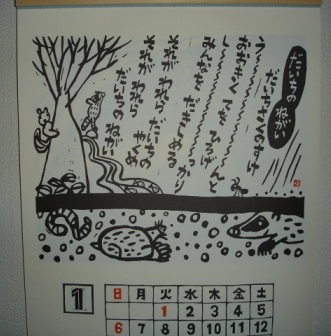 だいちの ねがい
だいちさくのすけ
う〜〜〜〜〜んと
おおきく てを ひろげ
し〜〜〜〜〜っかり
みんなを だきしめる
それが われら だいちの
やくめ
それが われら
だいちの ねがい
1
日 月 火 水 木 金 土
1 2 3 4 5
6 7 8 9 10 11 12